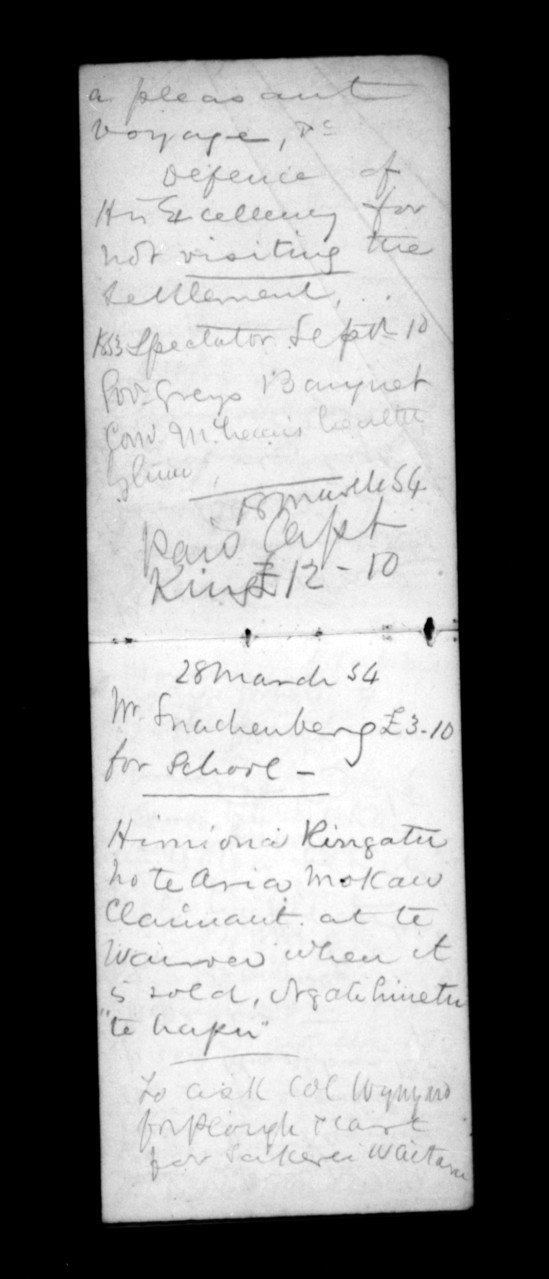 a pleasant
voyage, &c
Defence of
His Excellency for
not visiting the
Settlement, ..
1853 Spectator Septr 10
Gov. Greys Banquet
Gov. McLean's health
18 March 54
Paid Capt
King £12-10
28 March 54
Mr. Snachenberg £3-10
for School -
Himiona Ringatu
no te Aria Mokau
Claimant at te
Wairoa when it
is sold, Ngatihinetu
"te hapu"
To ask Col Wynyard
for Plough & Cart
for Waitara